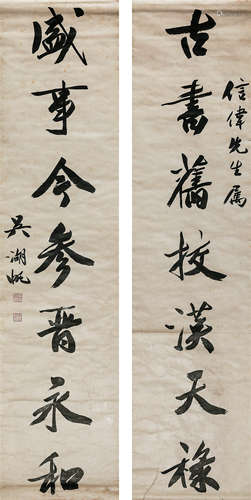 古書舊挍漢天祿
信偉先生属
盛事今參晉永和
吳湖帆